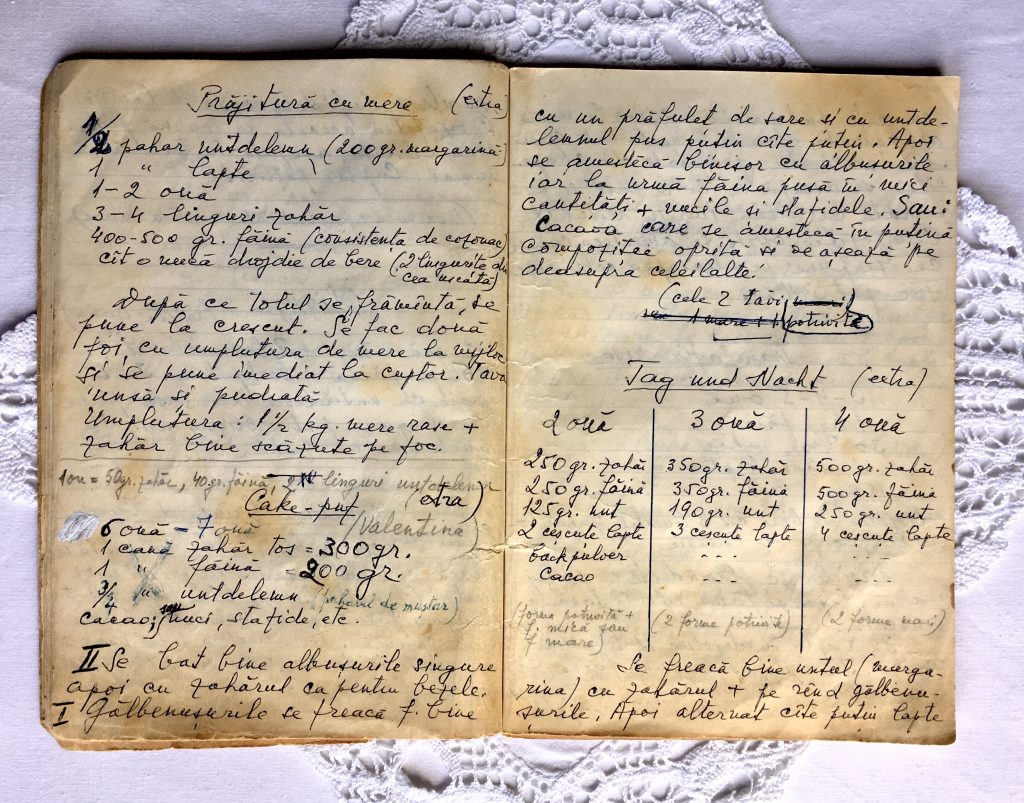 Prăjitură cu mere (extra)
1/2 pahar untdelemn (200 gr. margarină)
1 " lapte
1-2 ouă
3-4 linguri zahăr
400-500 gr. făină (consistenta de cozonac)
cît o nucă drojdie de bere (2 lingurite din
cea uscată)
După ce totul se frămîntă, se
pune la crescut. Se fac două
foi, cu umplutura de mere la mijloc
și se pune imediat la cuptor. Tava
unsă si pudrată
Umplutura: 1 1/2 kg. mere rase +
zahăr bine scăzute pe foc.
1 ou = 50gr. zahăr, 40 gr. făină, linguri untdelemn
Cake-puf (extra)
(Valentina)
6 ouă - 7 ouă
1 cană zahăr tos = 300 gr.
1 " făină - 200 gr.
3/4 " untdelemn (paharul de muștar)
cacao; sau nuci, stafide, etc.
II Se bat bine albușurile singure
apoi cu zahărul ca pentru bezele.
I Gălbenușurile se freacă f. bine
cu un prăfuleț de sare si cu untde-
lemnul pus puțin cîte puțin. Apoi
se amestecă binișor cu albușurile
iar la urmă făina pusă în mici
cantități + nucile si stafidele. Sau:
Cacaoa care se amestecă în puțină
compoziție oprită si se așează pe
deasupra celeilalte.
(cele 2 tăvi mici)
sau 1 mare + 1 potrivită
Tag und Nacht (extra)
2 ouă 3 ouă 4 ouă
250 gr. zahăr 350 gr. zahăr 500 gr. zahăr
250 gr. făină 350 gr. făină 500 gr. făină
125 gr. unt 190 gr. unt 250 gr. unt
2 cescute lapte 3 cescute lapte 4 cescute lapte
backpulver - - - - - -
cacao - - - - - - -
(forma potrivită + (2 forme potrivite) (2 forme mari)
f. mică sau
f. mare)
Se freacă bine untul (marga-
rina) cu zahărul + pe rînd gălbenu-
șurile. Apoi alternat cîte puțin lapte